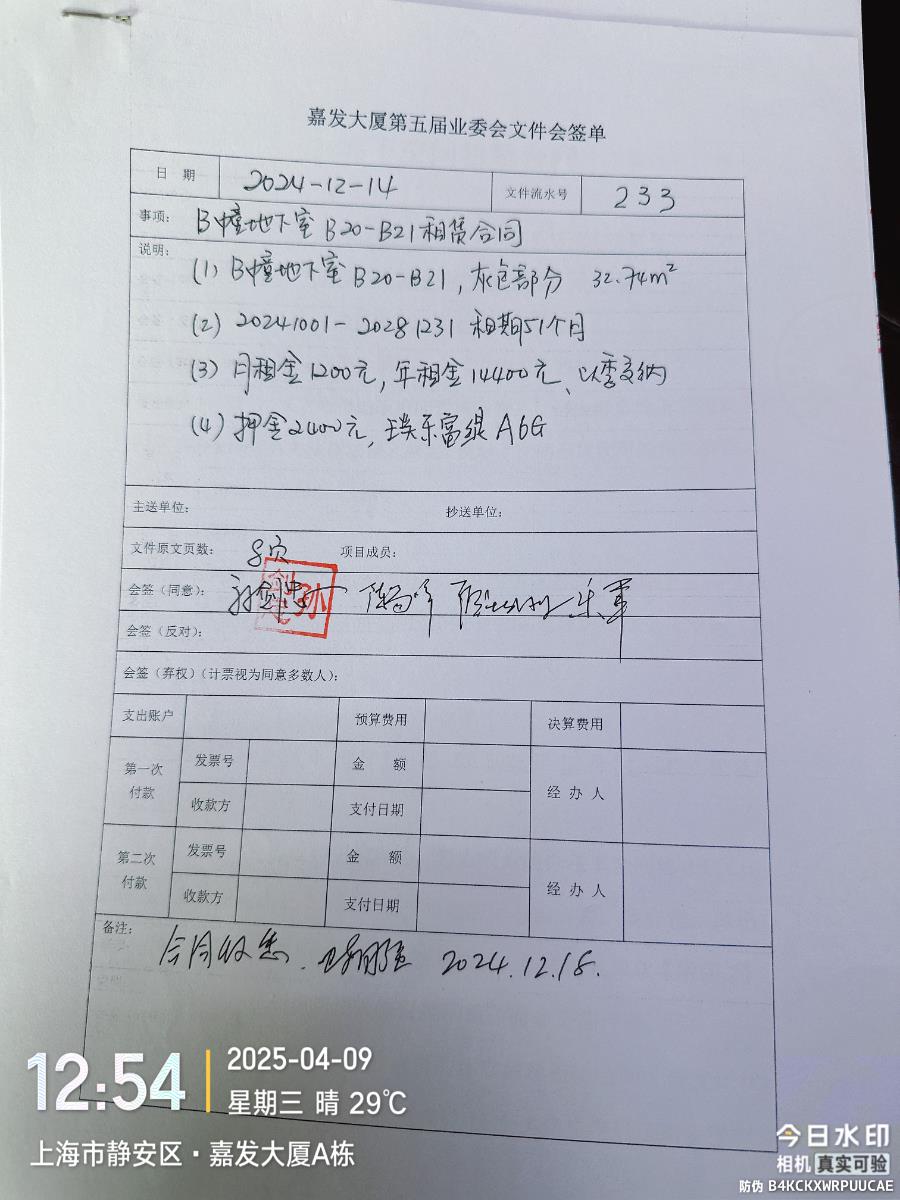 嘉发大厦第五届业委会文件会签单
日 期 2024-12-14 文件流水号 233
事项: B幢地下室B20-B21租赁合同
说明:
(1) B幢地下室B20-B21,灰色部分 32.74m²
(2) 20241001-20281231 租期51个月
(3) 月租金1200元,年租金14400元、以季交纳
(4) 押金2400元, A6G
主送单位: 抄送单位:
文件原文页数: 8页 项目成员:
会签(同意):
会签(反对):
会签(弃权)(计票视为同意多数人):
支出账户 预算费用 决算费用
第一次付款 发票号 金 额 经 办 人
收款方 支付日期
第二次付款 发票号 金 额 经 办 人
收款方 支付日期
备注:
合同收悉. 2024.12.18.
12:54
2025-04-09
星期三 晴 29℃
上海市静安区·嘉发大厦A栋
今日水印
相机 真实可验
防伪 B4KCKXWRPUUCAE